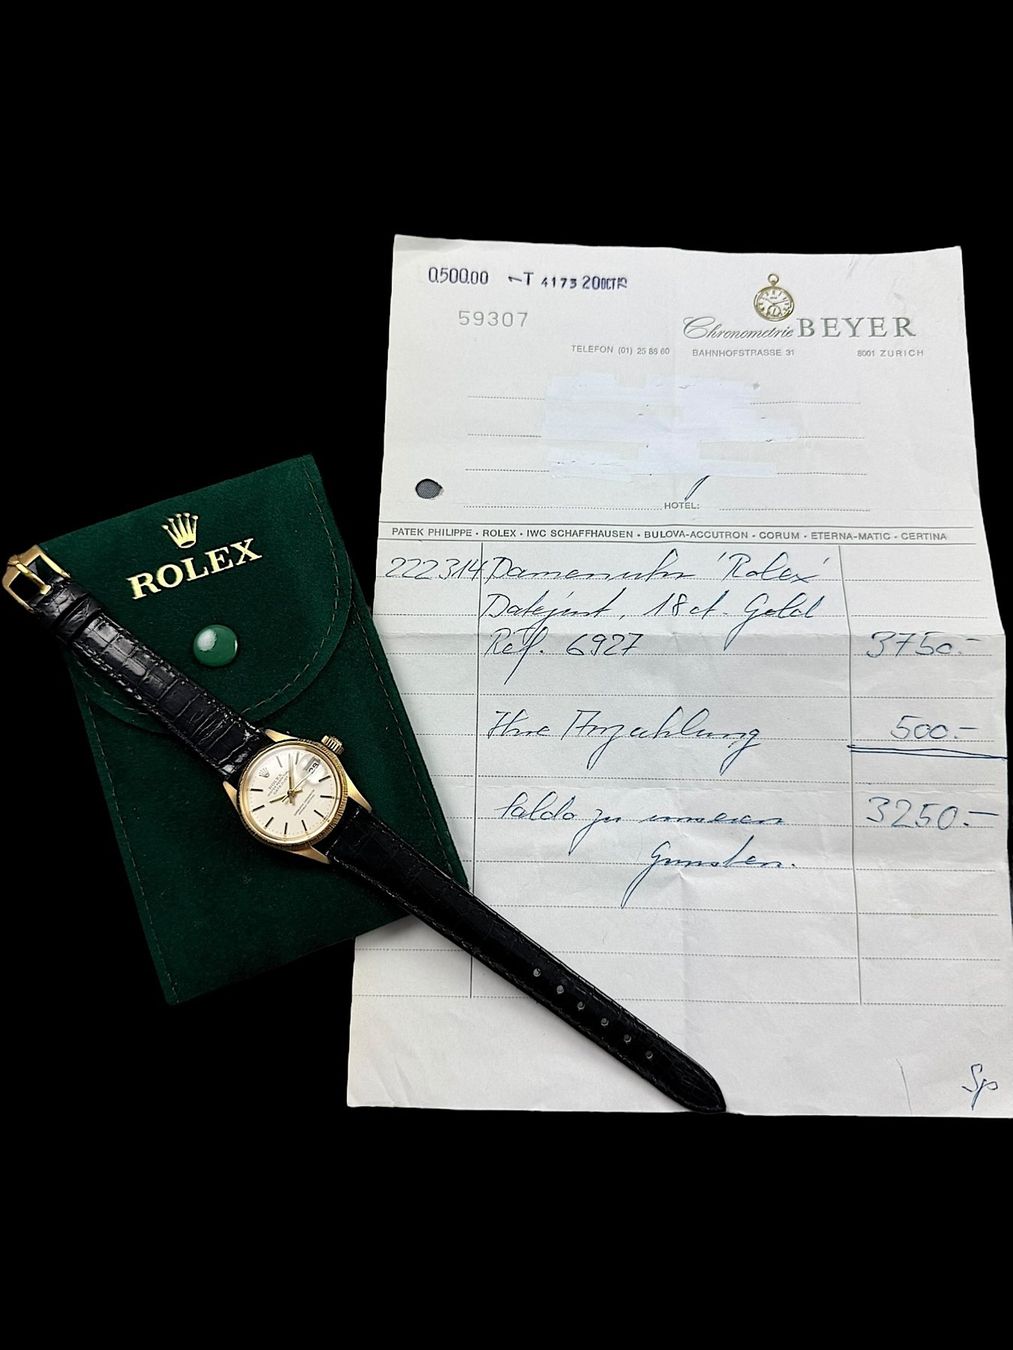 0500.00 T 4173 20 OCT
59307
Chronometrie BEYER
TELEFON (01) 25 86 60 BAHNHOFSTRASSE 31 8001 ZURICH
HOTEL:
PATEK PHILIPPE · ROLEX · IWC SCHAFFHAUSEN · BULOVA-ACCUTRON · CORUM · ETERNA-MATIC · CERTINA
222314 Damenuhr 'Rolex'
Datejust, 18 ct. Gold
Réf. 6927 3750.-
Ihre Anzahlung 500.-
Saldo zu unseren 3250.-
Gunsten.
Sp
ROLEX
ROLEX